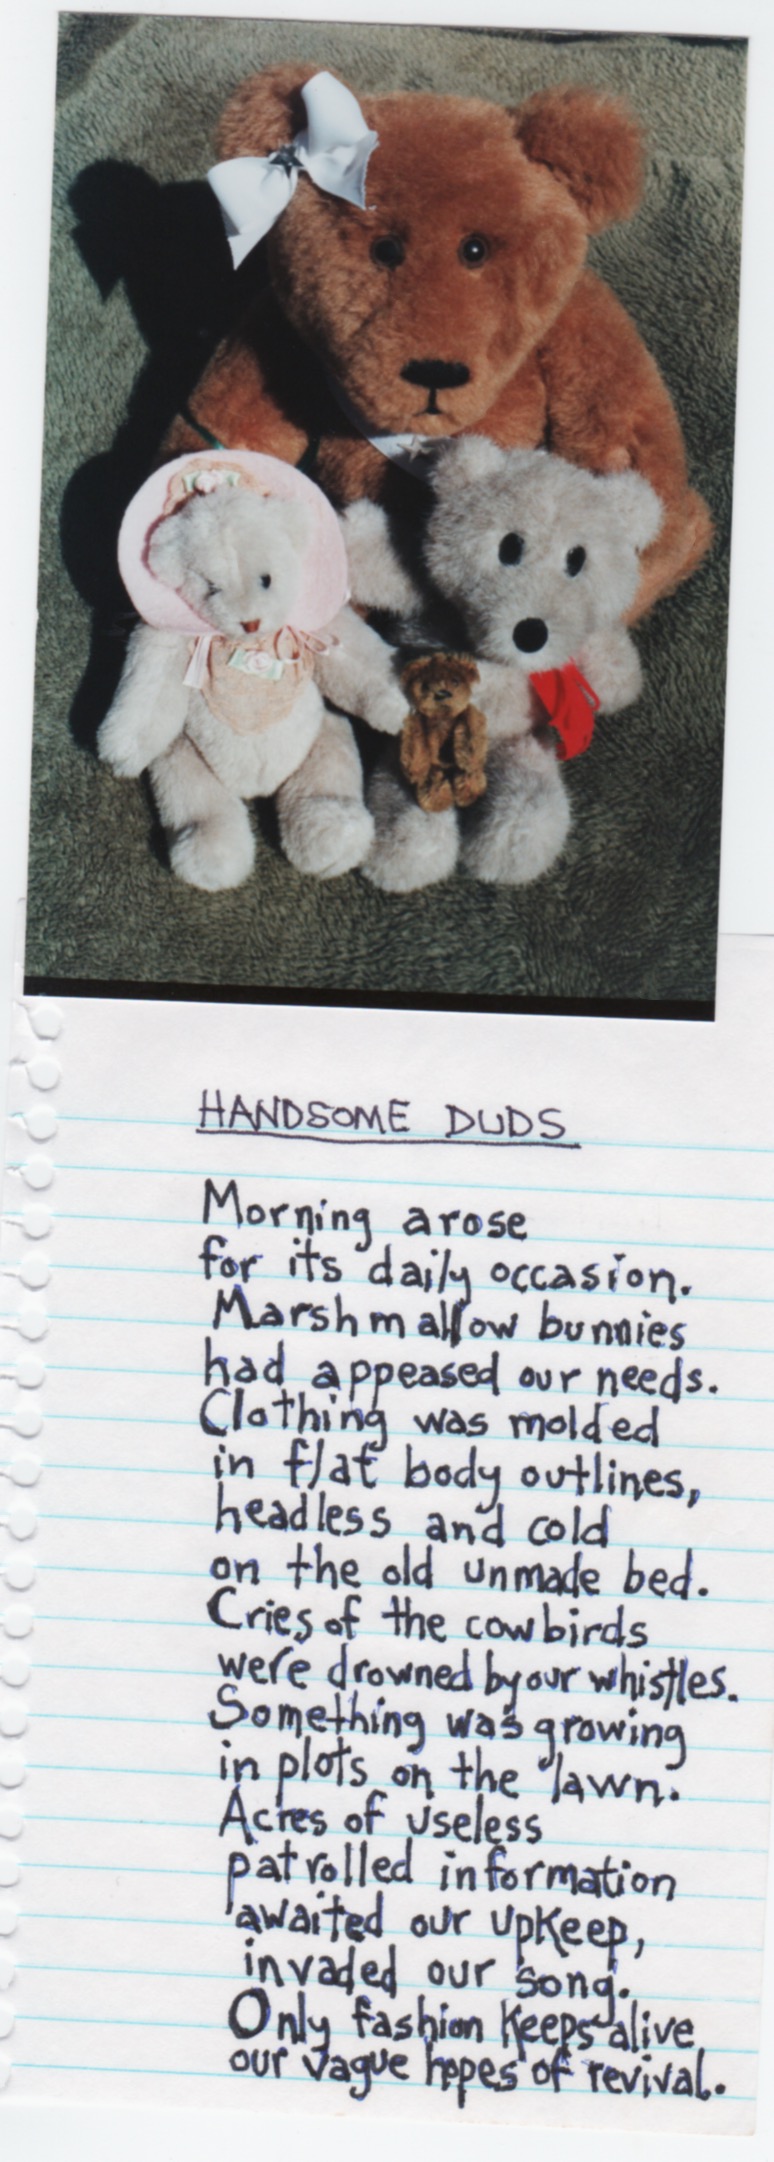 HANDSOME DUDS
Morning arose
for its daily occasion.
Marshmallow bunnies
had appeased our needs.
Clothing was molded
in flat body outlines,
headless and cold
on the old unmade bed.
Cries of the cowbirds
were drowned by our whistles.
Something was growing
in plots on the lawn.
Acres of useless
patrolled information
awaited our upkeep,
invaded our song.
Only fashion keeps alive
our vague hopes of revival.